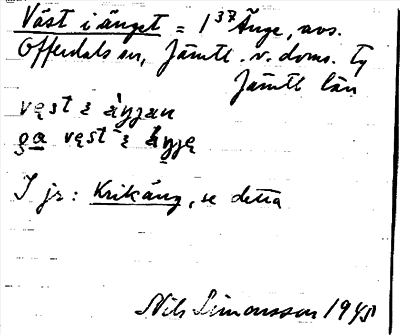 Väst i änget = 1³⁷ Änge, avs.
Offerdals sn, Jämtl. v. doms. tg
Jämtl län
vęst i äŋŋan
ga vęst i äŋŋe
I jr: Krikäng, se detta
Nils Simonsson 1945